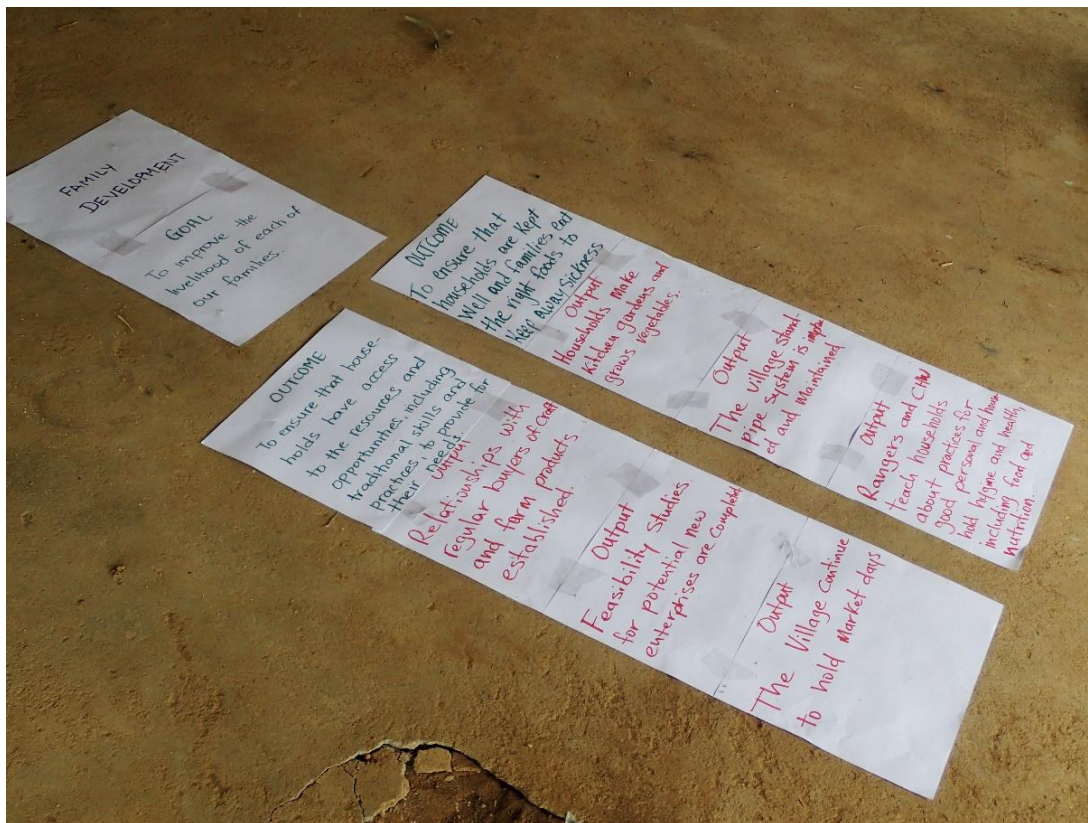 FAMILY
DEVELOPMENT
GOAL
To improve the
livelihood of each of
our families.
OUTCOME
To ensure that
households are kept
Well and families eat
the right foods to
keep away sickness
Output
Households make
kitchen gardens and
grows vegetables.
Output
The village stand-
pipe system is
ed and maintained
Output
Rangers and CHW
teach households
about practices for
good personal and house
hold hygine and health,
including food and
nutrition.
OUTCOME
To ensure that house-
holds have access
to the resources and
opportunities, including
traditional skills and
practices, to provide for
their needs.
Output
Relationships with
regular buyers of craft
and farm products
established.
Output
Feasibility Studies
for potential new
enterprises are completed
Output
The Village continue
to hold Market days